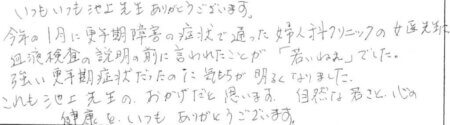 いつもいつも池上先生ありがとうございます。
今年の1月に更年期障害の症状で通った婦人科クリニックの女医先生に
血液検査の説明の前に言われたことが「若いねぇ」でした。
強い更年期症状だったのに気もちが明るくなりました。
これも池上先生のおかげだと思います。自然な若さと、心の
健康を、いつもありがとうございます。